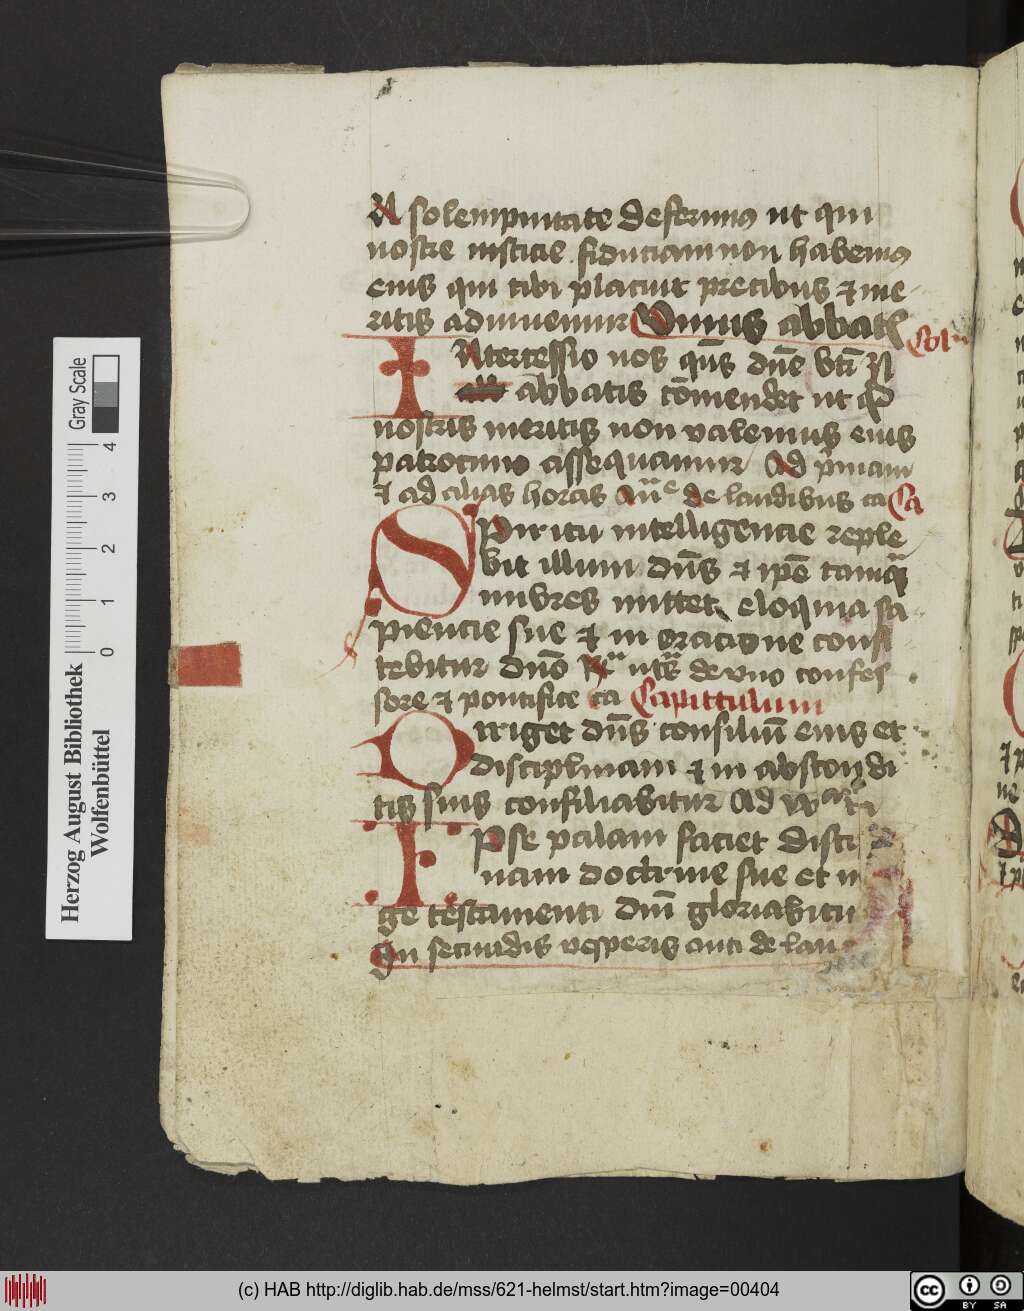 N solempnitate deferimus ut qui
nostre iusticie fiduciam non habemus
eius qui tibi placuit precibus et me
ritis adiuuemur Unius abbatis Col
INtercessio nos qs dne bti N
abbatis comendet ut qd
nostris meritis non valemus eius
patrocinio assequamur Ad primam
et ad alias horas an de laudibus ca Ca
SPiritu intelligencie reple
bit illum dns et ipe tamq
imbres mittet eloquia sa
piencie sue et in oracione confi
tebitur dno R utr de uno confes
sore et pontifice ca Capittulum
Dirriget dns consiliu eius et
disciplinam et in abscondi
tis suis consiliabitur Ad
IPse palam faciet disci
nam doctrine sue et in
ge testamenti dni gloriabitur
In secundis vesperis anti de lau
Herzog August Bibliothek
Wolfenbüttel
Gray Scale
0 1 2 3 4
(c) HAB http://diglib.hab.de/mss/621-helmst/start.htm?image=00404
cc BY SA